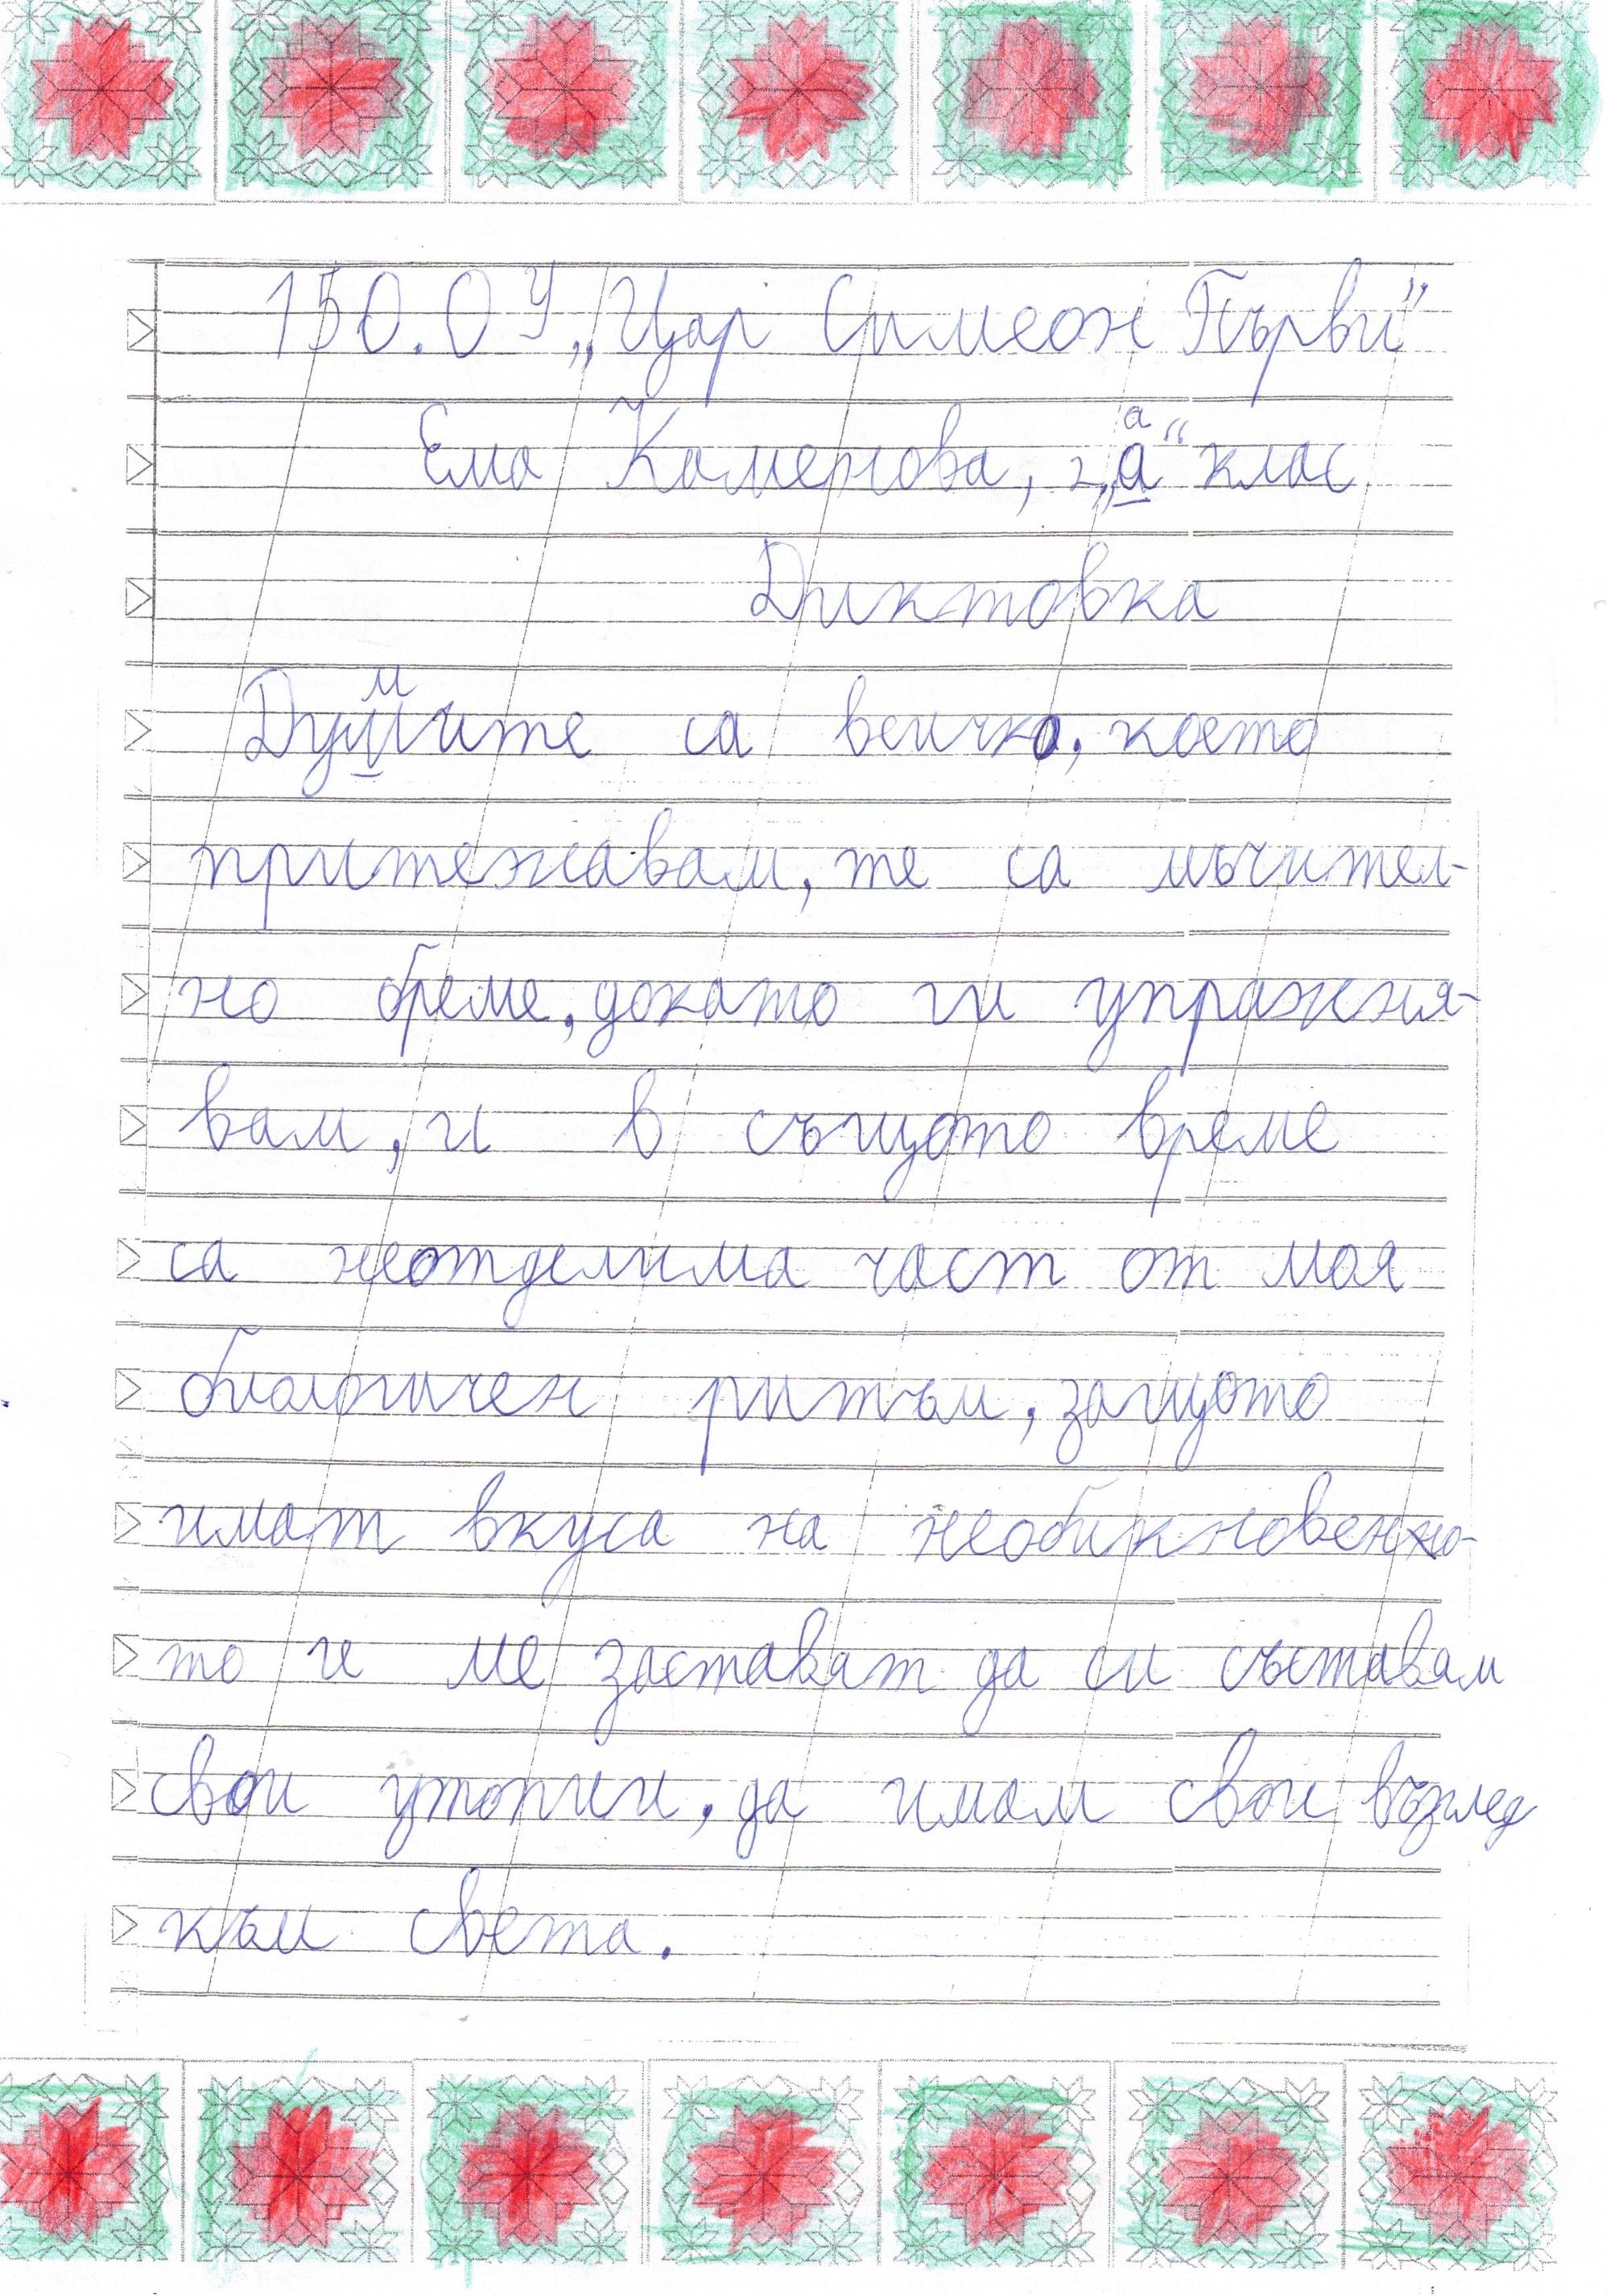 150. ОУ „Цар Симеон Първи“
Ема Каменова, 2 „а“ клас
Диктовка
Думите са всичко, което
притежавам, те са мъчител-
но бреме, докато ги упражня-
вам, и в същото време
са неотделима част от моя
биологичен ритъм, защото
имат вкуса на необикновено-
то и ме заставят да си съставям
свои утопии, да имам свои възглед
към света.